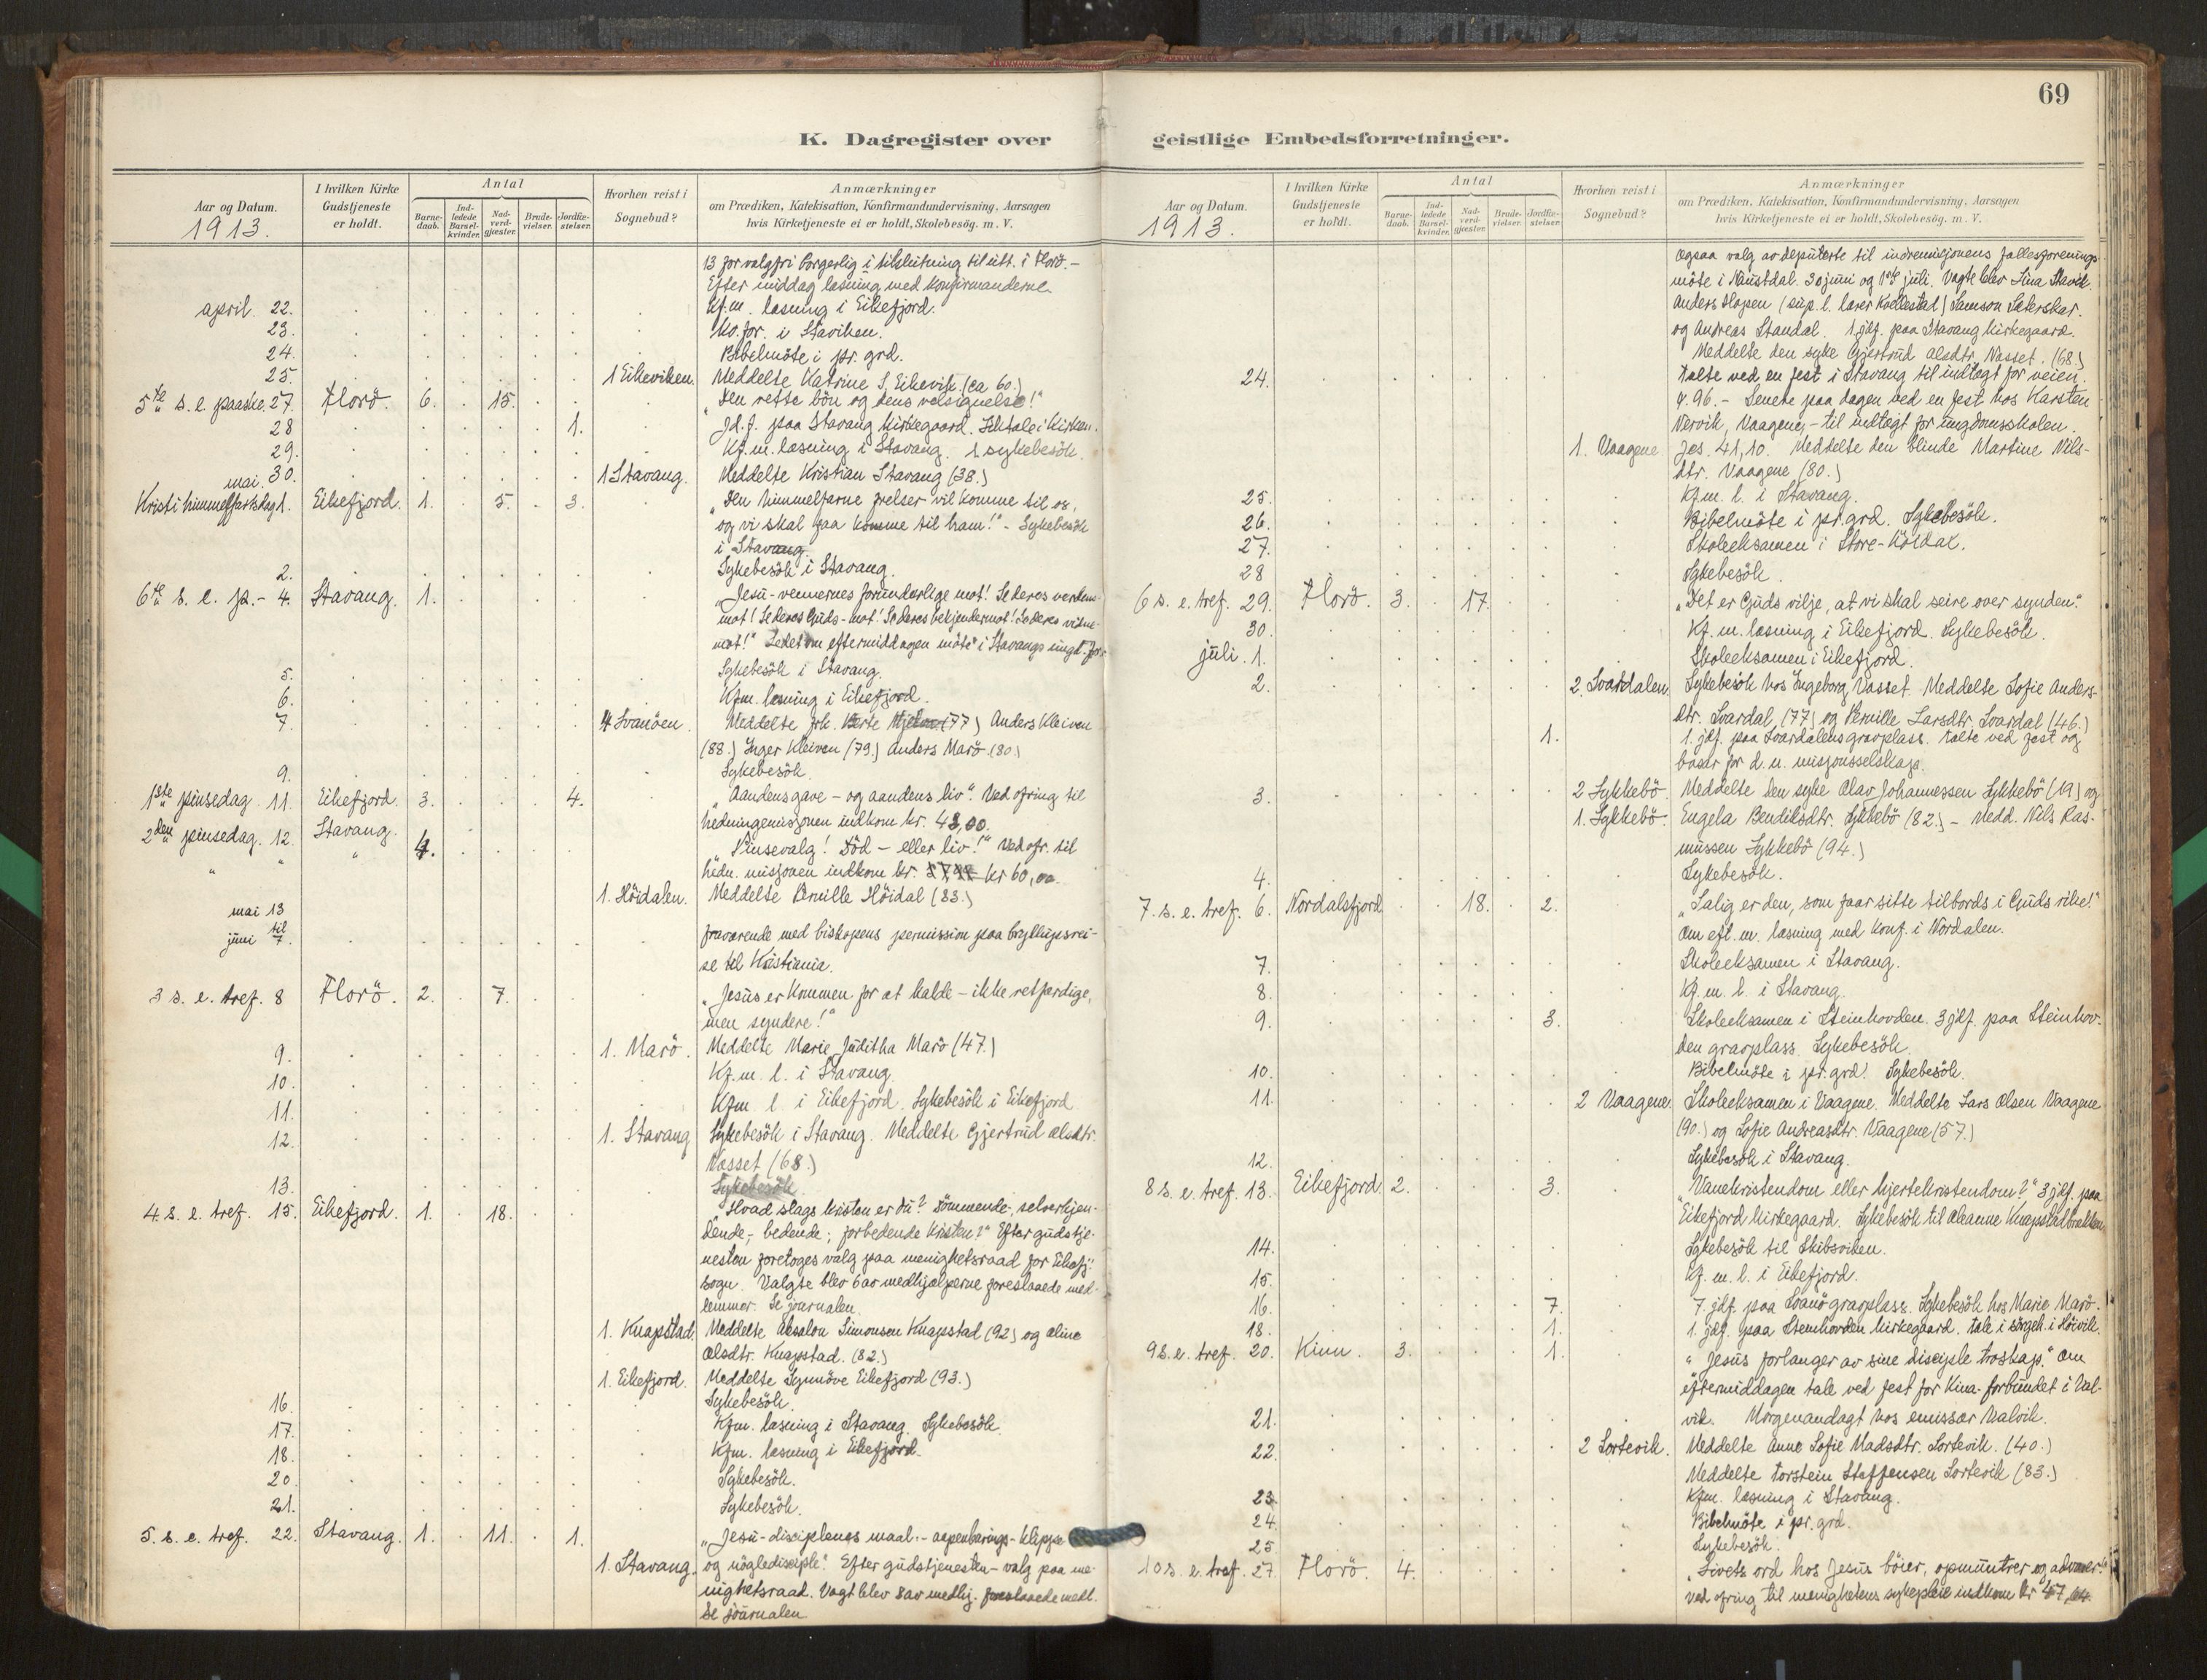 69
K. Dagregister over
geistlige Embedsforretninger.
Aar og Datum. 1913.
I hvilken Kirke Gudstjeneste er holdt.
Antal
Barnedaab.
Indledede Barselkvinder.
Nadverdgjæster.
Brudevielser.
Jordfæstelser.
Hvorhen reist i Sognebud?
Anmærkninger
om Prædiken, Katekisation, Konfirmandundervisning, Aarsagen
hvis Kirketjeneste ei er holdt, Skolebesøg. m. V.
13 for valgfri borgerlig i tilslutning til utt. i Florö.-
Efter middag læsning med konfirmanderne.
april. 22. Kf.m. læsning i Eikefjord.
23. Kg. for. i Staviken.
24. Bibelmöte i pr. grd.
25. 1 Eikeviken. Meddelte Katrine S. Eikevik (ca 60.)
5te s. e. paaske. 27. Florö. 6. 15. „Den rette bön og dens velsignelse!"
28 1. Jd.f. paa Stavang kirkegaard. Liktale i kirken.
29. Kf.m. læsning i Stavang. 1 sykebesök.
30. 1 Stavang. Meddelte Kristian Stavang (38.)
mai.
Kristi himmelfartsdag 1. Eikefjord. 1. 5. 3. „Den himmelfarne frelser vil komme til os,
og vi skal faa komme til ham!" - Sykebesök
i Stavang.
2. Sykebesök i Stavang.
6te s. e. p.- 4. Stavang. 1. „Jesu-vennernes forunderlige mot! Se deres verdens-
mot! Se deres Guds-mot! Se deres bekjendermot! Se deres vidne-
mot!" Ledet om eftermiddagen möte i Stavangs ungd. for.
5. Sykebesök i Stavang.
6. Kfm. læsning i Eikefjord.
7. 4 Svanöen. Meddelte frk. (77) Anders Kleiven
(88.) Inger Kleiven (79.) Anders Marö (80)
9. Sykebesök.
1ste pinsedag. 11. Eikefjord. 3. 4. „Aandens gave - og aandens liv". Ved ofring til
hedningemisjonen indkom kr. 43,00.
2den pinsedag. 12. Stavang. 4. „Pinsevalg! Död - eller liv!" Ved ofr. til
" " hedn. misjonen indkom kr. kr 60,00.
1. Höidalen. Meddelte Pernille Höidal (83.)
mai 13
til
juni 7. fraværende med biskopens permission paa bryllupsrei-
se til Kristiania.
3 s. e. tref. 8 Florö. 2. 7. „Jesus er kommen for at kalde - ikke retfærdige,
men syndere!"
9. 1. Marö. Meddelte Marie Juditha Marö (47.)
10. Kf.m. l. i Stavang.
11. Kfm l. i Eikefjord. Sykebesök i Eikefjord
12. 1. Stavang Sykebesök i Stavang. Meddelte Gjertrud Olsdtr.
Nasset (68.)
13. Sykebesök
4. s. e. tref. 15. Eikefjord. 1. 18. „Hvad slags kristen er du? Dömmende, selverkjen-
dende,- bedende; forbedende kristen?" Efter gudstje-
nesten foretoges valg paa menighetsraad for Eikefj.
sogn. Valgte blev 6 av medhjælperne foreslaaede med-
lemmer. Se journalen.
1. Knapstad. Meddelte Absalon Simonsen Knapstad (92) og Oline
Olsdtr. Knapstad. (82.)
1. Eikefjord. Meddelte Synnöve Eikefjord (93.)
16. Sykebesök.
17. Kfm. læsning i Stavang. Sykebesök.
18. Kfm. læsning i Eikefjord.
20. Sykebesök.
21. Sykebesök.
5. s. e. tref. 22. Stavang. 1. 11. 1. „Jesu-disciplenes maal:- aapenbarings-klippe
1. Stavang. og nögledisciple". Efter gudstjenesten - valg paa me-
nighetsraad. Vagt blev 8 av medhj. foreslaaede medl.
Se journalen.
Aar og Datum. 1913.
I hvilken Kirke Gudstjeneste er holdt.
Antal
Barnedaab.
Indledede Barselkvinder.
Nadverdgjæster.
Brudevielser.
Jordfæstelser.
Hvorhen reist i Sognebud?
Anmærkninger
om Prædiken, Katekisation, Konfirmandundervisning, Aarsagen
hvis Kirketjeneste ei er holdt, Skolebesög. m. V.
Ogsaa valg av deputerte til indremisjonens fællesforenings-
möte i Naustdal. 30 juni og 1ste juli. Vagte blev Lina Stavik
Anders Hopen (sup. l. lærer Kvellestad) Samson Sæterskar.
og Andreas Standal. 1 jdf. paa Stavang kirkegaard.
Meddelte den syke Gjertrud Olsdtr. Nasset. (68.)
24. Talte ved en fest i Stavang til indtægt for veien.
4.96.- Senere paa dagen ved en fest hos Karsten
Nervik, Vaagene,- til indtægt for ungdomsskolen.
1. Vaagene Jes. 41,10. Meddelte den blinde Martine Nils-
dtr. Vaagene (80.)
25. Kf.m. l. i Stavang.
26. Bibelmöte i pr.grd. Sykebesök.
27. Skoleeksamen i Store-Höidal.
28 Sykebesök.
6 s. e. tref. 29. Florö. 3. 17. „Det er Guds vilje, at vi skal seire over synden."
30. Kf. m. læsning i Eikefjord. Sykebesök.
juli. 1. Skoleeksamen i Eikefjord.
2. 2. Svardalen. Sykebesök hos Ingeborg Nasset. Meddelte Sofie Anders-
dtr. Svardal, (77) og Pernille Larsdtr. Svardal (46.)
1. 1. jdf. paa Svardalens gravplass. Talte ved fest og
basar for d. n. misjonsselskap.
3. 2 Lykkebö. Meddelte den syke Olav Johannessen Lykkebö (19) og
1. Lykkebö. Engela Bendiksdtr. Lykkebö (82.) - Medd. Nils Ras-
mussen Lykkebö (94.)
4. Sykebesök.
7. s. e. tref. 6. Nordalsfjord 18. 2. „Salig er den, som faar sitte tilbords i Guds rike!"
Om eft. m. læsning med konf. i Nordalen.
7. Skoleeksamen i Stavang.
8. Kf. m. l. i Stavang.
9. 3. Skoleeksamen i Steinhovden. 3 jdf. paa Steinhov-
den gravplass. Sykebesök.
10. Bibelmöte i pr.grd. Sykebesök.
11. 2 Vaagene. Skoleeksamen i Vaagene. Meddelte Lars Olsen Vaagene
(90.) og Sofie Andreasdtr. Vaagene (57.)
12. Sykebesök i Stavang.
8 s. e. tref. 13. Eikefjord. 2. 3. „Vanekristendom eller hjertekristendom?" 3 jdf. paa
Eikefjord kirkegaard. Sykebesök til Oleanne Knapstadbrekken
14. Sykebesök til Skibsviken.
15. Kf. m. l. i Eikefjord.
16. 7. 7. jdf. paa Svanö gravplass. Sykebesök hos Marie Marö.
18. 1. 1. jdf. paa Steinhovden kirkegaard. tale i sörgeh. i Höivik.
9 s. e. tref. 20. Kinn. 3. 1. „Jesus forlanger av sine disciple troskap." Om
eftermiddagen tale ved fest for Kina-forbundet i Val-
21. vik. Morgenandagt hos emissær Valvik.
22. 2 Sortevik. Meddelte Anne Sofie Madsdtr. Sortevik. (40.)
Meddelte Torstein Steffensen Sortevik (83.)
23. Kfm. læsning i Stavang.
24. Bibelmöte i pr. grd.
25 Sykebesök.
10 s. e. tref. 27. Florö. 4. „Livets ord hos Jesus böier, opmuntrer og advarer."
Ved ofring til menighetens sykepleie indkom kr 47,